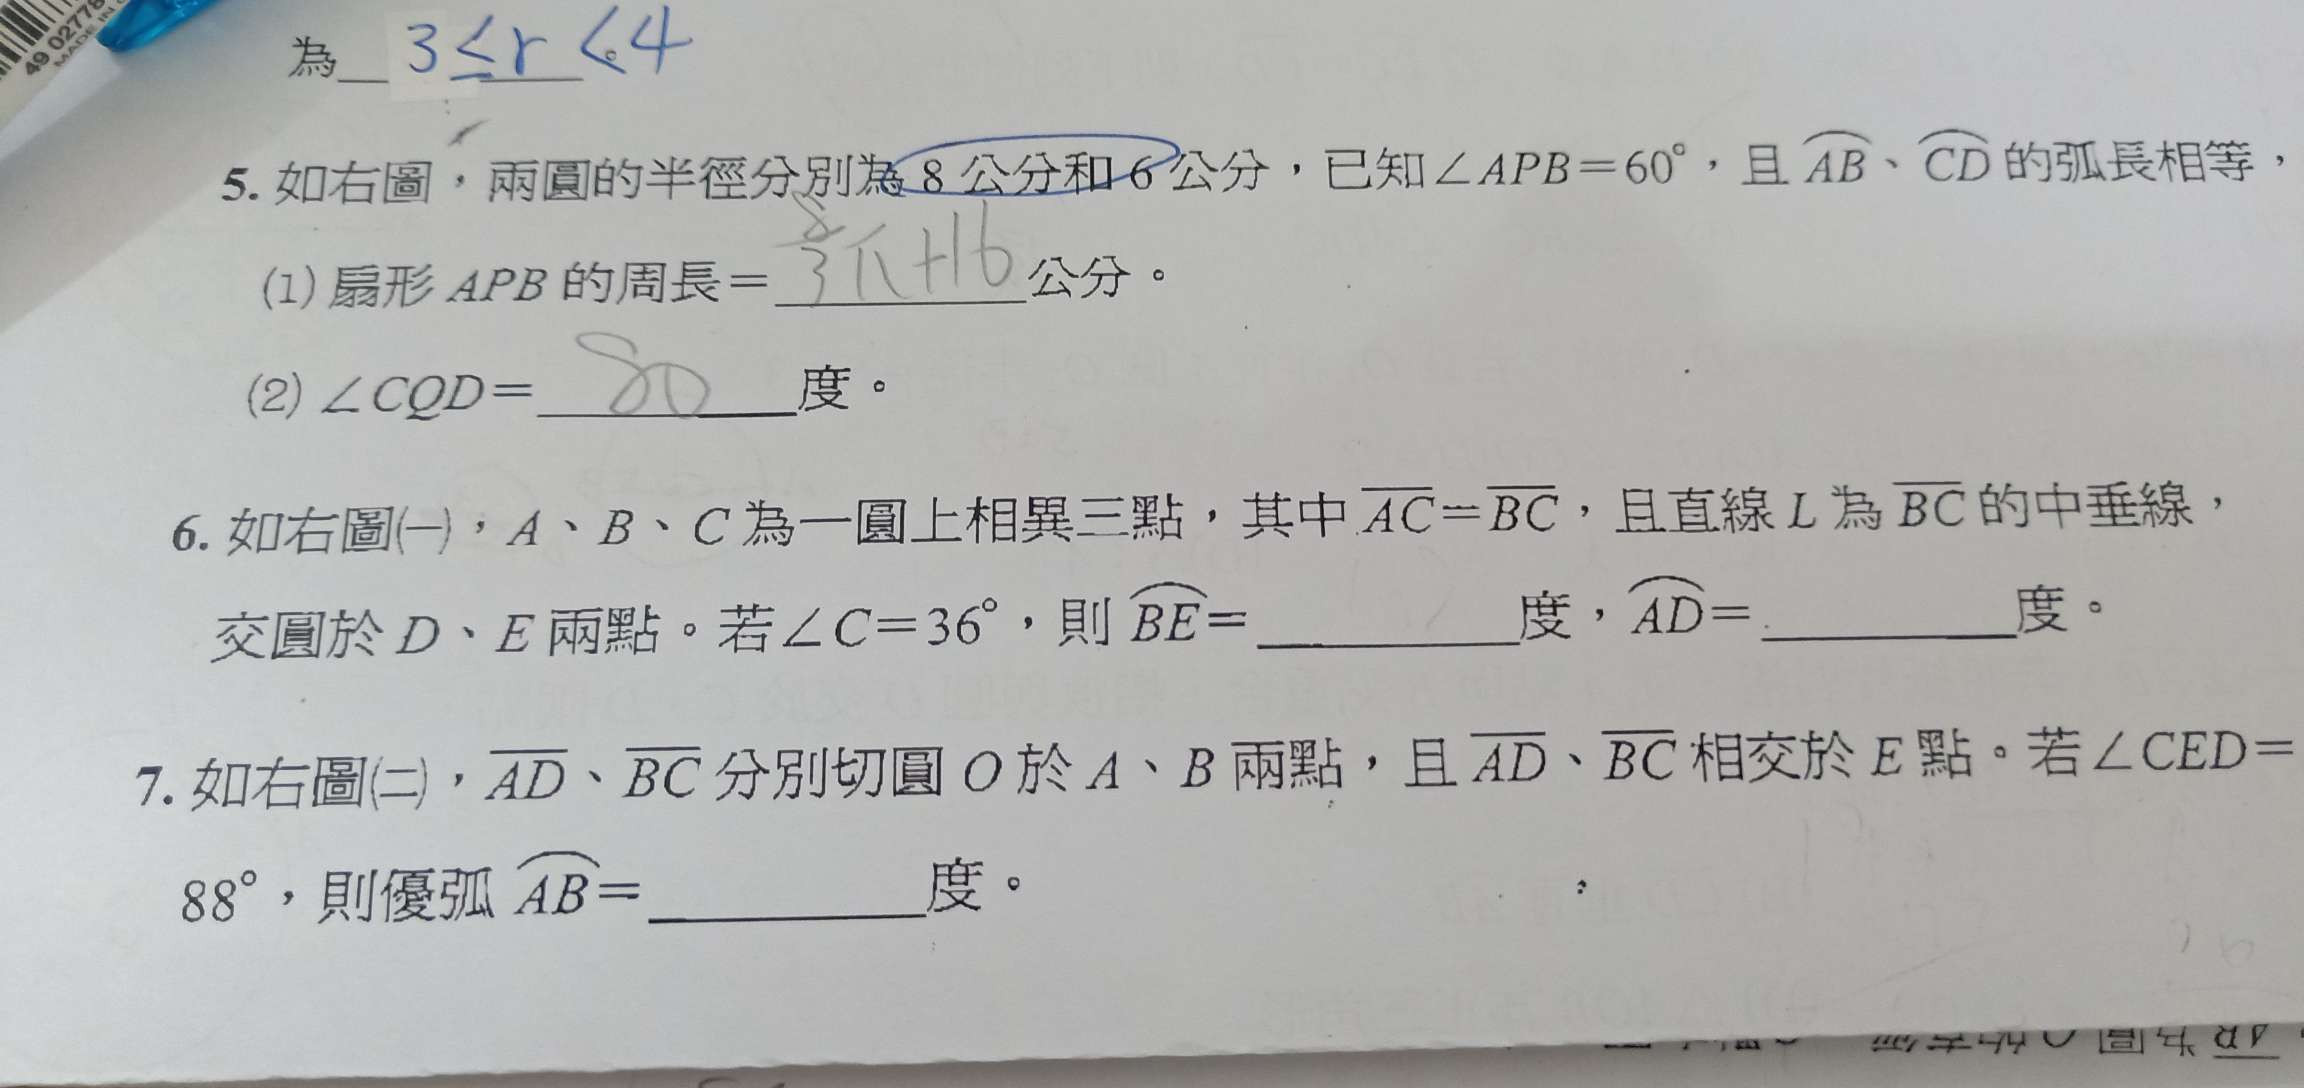 49 02778
MADE IN
為 3≤r<4。
5. 如右圖，兩圓的半徑分別為 8 公分和 6 公分，已知∠APB＝60°，且 AB、CD 的弧長相等，
(1) 扇形 APB 的周長＝8/3π+16公分。
(2) ∠CQD＝80度。
6. 如右圖㈠，A、B、C 為一圓上相異三點，其中 AC＝BC，且直線 L 為 BC 的中垂線，
交圓於 D、E 兩點。若∠C＝36°，則 BE＝______度，AD＝______度。
7. 如右圖㈡，AD、BC 分別切圓 O 於 A、B 兩點，且 AD、BC 相交於 E 點。若∠CED＝
88°，則優弧 AB＝______度。